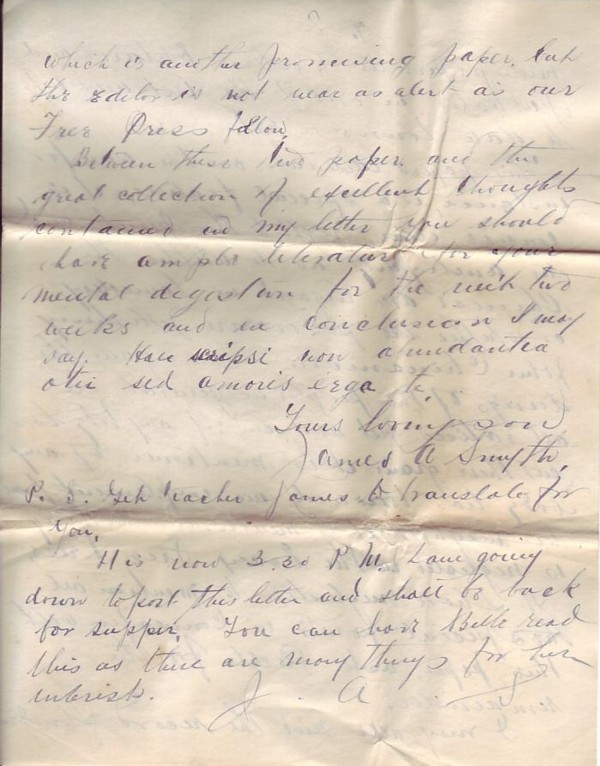 which is another promising paper. but
the editor is not near as alert as our
Free Press fellow.
Between these two paper and the
great collection of excellent thoughts
contained in my letter you should
have ample literature for your
mental digestion for the next two
weeks and in conclusion I may
say. Haec scripsi non abundantia
otii sed amoris erga te.
Yours loving son
James A Smyth.
P. S. Get teacher James to translate for
you.
It is now 3.30 P.M. I am going
down to post this letter and shall be back
for supper. You can have Belle read
this as there are many things for her
interest.
J. A